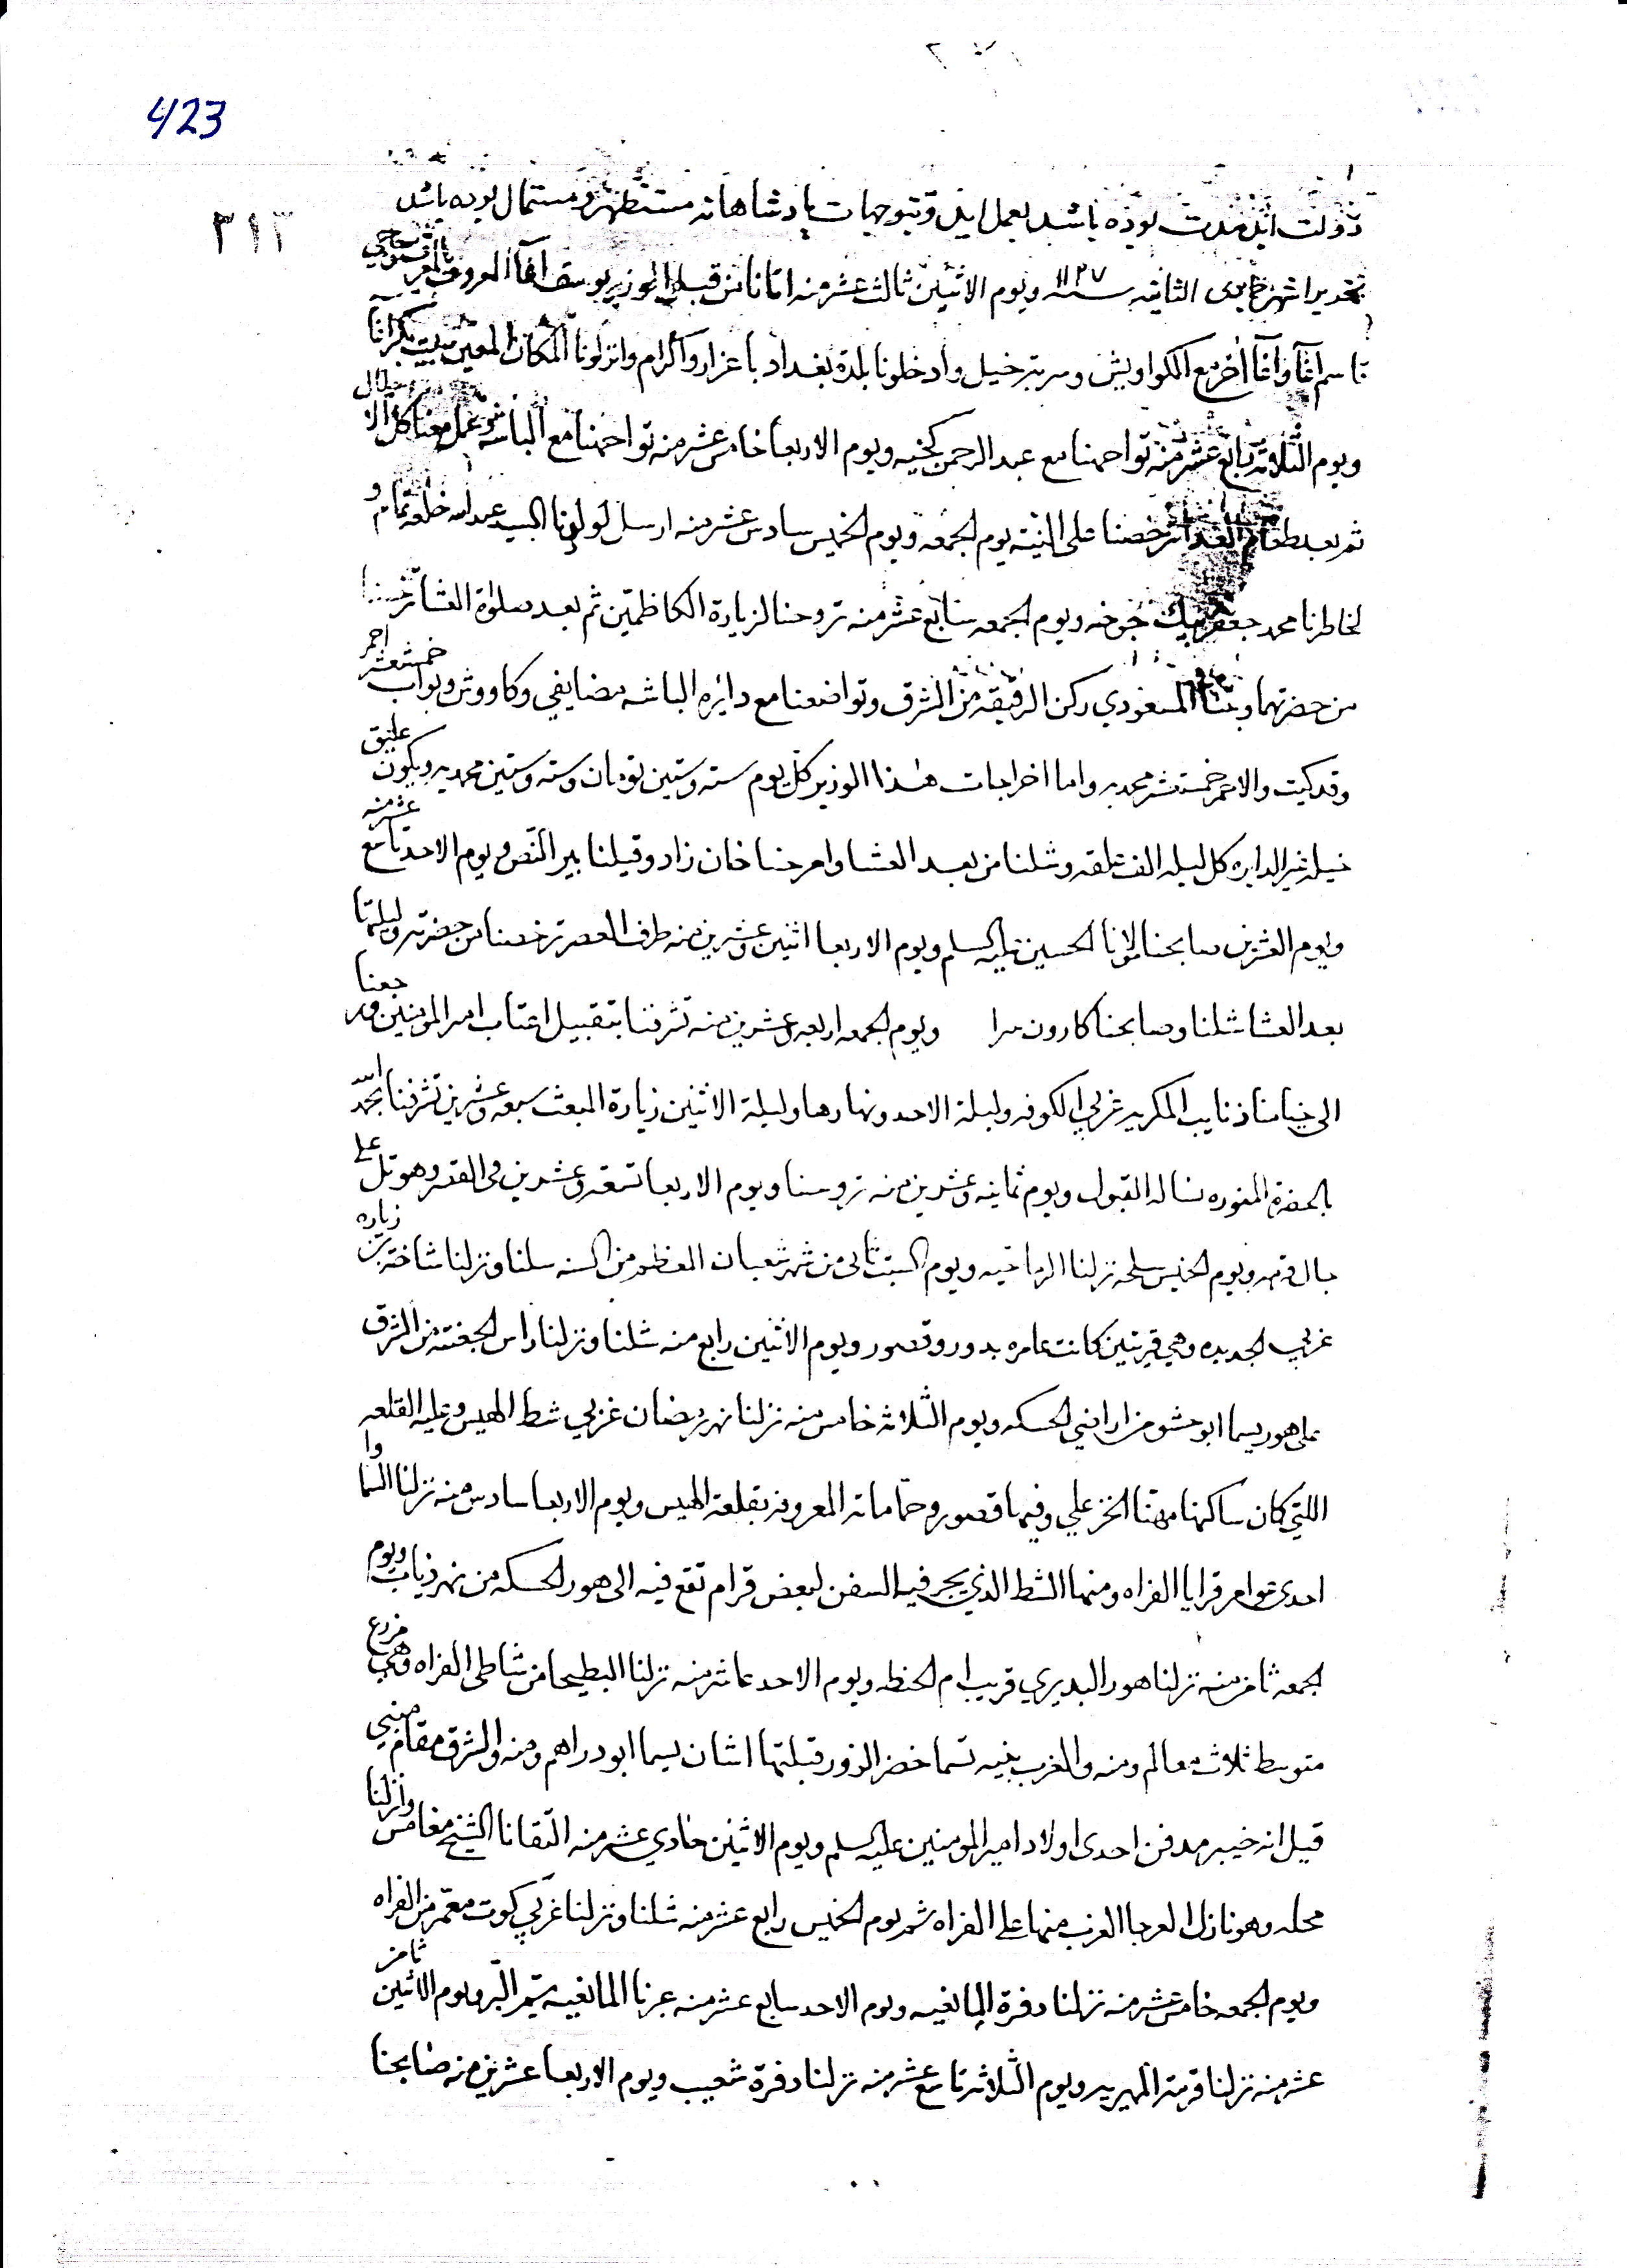 423
٣١٣
دولت ابد مدت بوده باشد بعمل ايد وبتوجهات پادشاهانه مستظهر ومستمال بوده باشد
تحريرا شهر جمادى الثانيه سنه ١١٣٧ ويوم الاثنين ثالث عشر منه اتانا من قبل الوزير يوسف اغا المعروف
قاسم اغا واغا اخر مع الكواويش وسربة خيل وادخلونا بلدة بغداد باعزاز واكرام وانزلونا المكان المعين ببيت بكر اغا
ويوم الثلاثه رابع عشر منه تواجهنا مع عبد الرحمن كخيه ويوم الاربعا خامس عشر منه تواجهنا مع الباشه وعمل معنا كل
ثم بعد طعام الغدا ترخصنا على النيته يوم الجمعه ويوم الخميس سادس عشر منه ارسل لولدنا السيد عبد الله خلعه تمام و
لخاطرنا محمد جعفر بيك جوخه ويوم الجمعه سابع عشر منه تروحنا لزيارة الكاظمين ثم بعد صلوة العشا ترخصنا
من حضرتهما وبتنا المسعودي ركن الرقيقه من الشرق وتواضعنا مع دايره الباشه مضايفي وكاووش وبواب خمستعشر احمر
وقدكيت والاحمر خمستعشر محمديه واما اخراجات هذا الوزير كل يوم سته وستين تومان وسته وستين محمديه ويكون عليق
خيله غير الدايره كل ليله الف علقه وشلنا من بعد العشا وامرحنا خان زاد وقيلنا بير النص ويوم الاحد تاسع عشر منه
ويوم العشرين صابحنا مولانا الحسين عليه السلم ويوم الاربعا اثنين وعشرين منه طرف العصر ترخصنا من حضرته وليلتها
بعد العشا شلنا وصابحنا كارون سرا ويوم الجمعه اربعه وعشرين منه تشرفنا بتقبيل اعتاب امير المومنين ورجعنا
الى خيامنا ذنايب المكريه غربي الكوفه وليلة الاحد ونهارها وليلة الاثنين زيارة المبعث سبعه وعشرين تشرفنا بحمد الله
بالحضرة المنوره نساله القبول ويوم ثمانيه وعشرين منه تروسنا ويوم الاربعا تسعه وعشرين في القصر وهو تل على
ويوم الخميس سلخه نزلنا الرماحيه ويوم السبت ثاني من شهر شعبان المعظم من السنه شلنا ونزلنا شاخة
غربي الجديده وهي قريتين كانت عامره بدور وقصور ويوم الاثنين رابع منه شلنا ونزلنا راس الجفته من الشرق
على هور يسما ابو حشو من اراضي الحسكه ويوم الثلاثه خامس منه نزلنا نهر رمضان غربي شط الهيس وعليه القلعه
اللتي كان ساكنها مهنا الخزعلي وفيها قصور وحمامات المعروفه بقلعة الهيس ويوم الاربعا سادس منه نزلنا السماوا
احدى عوامر قرايا الفراه ومنها الشط الذي يجر فيه السفن لبعض قرام تقع فيه الى هور الحسكه من نهر ذياب ويوم
الجمعه ثامن منه نزلنا هور البديري قريب ام الحنطه ويوم الاحد عاشر منه نزلنا البطيحا من شاطي الفراه وهي مزرع
متوسط ثلاث معالم ومنه والغرب بنيه تسما خضر الزور قبلتها اشان يسما ابو دراهم ومنه والشرق مقام مبني
قيل انه خيبر مدفن احدى اولاد امير المومنين عليه السلم ويوم الاثنين حادي عشر منه التقانا الشيخ مغامس وانزلنا
محله وهو نازل العرجا الغرب منها على الفراه ثم يوم الخميس رابع عشر منه شلنا ونزلنا غربي كوت معمر من الفراه
ويوم الجمعه خامس عشر منه نزلنا دفرة المايغيه ويوم الاحد سابع عشر منه عبرنا المايغيه يتم البر ويوم الاثنين ثامن
عشر منه نزلنا قرمة المهريه ويوم الثلاثه تاسع عشر منه نزلنا دفرة شعيب ويوم الاربعا عشرين منه صابحنا